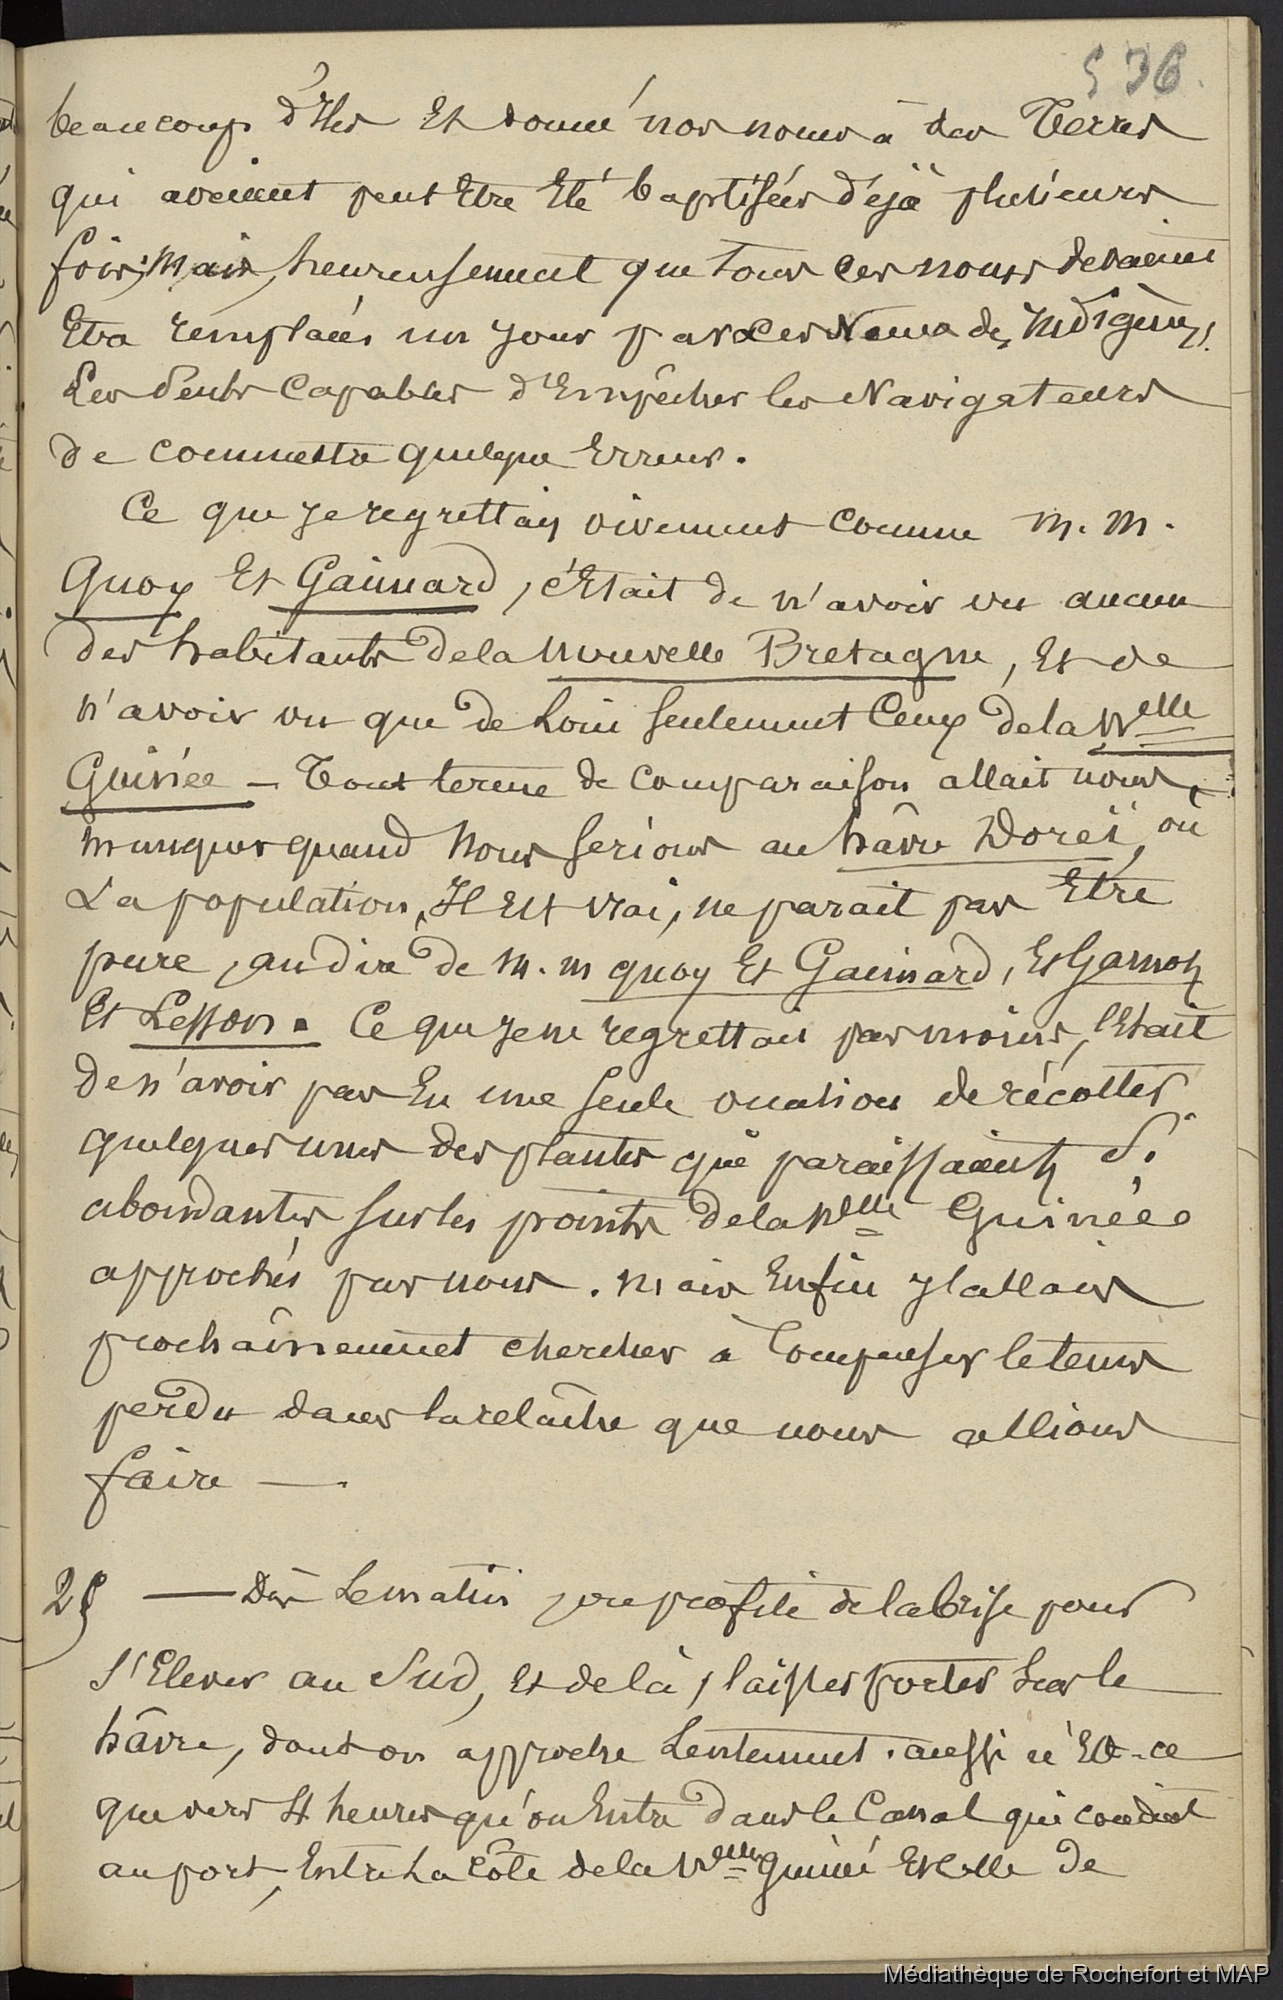 536.
beaucoup d'Iles Et donné nos noms à des Terres
qui avaient peut Etre Eté baptisées déjà plusieurs
fois; Mais, heureusement que tous ces noms devaient
Etre remplacés un jour par ces Noms des Indigènes,
Les Seuls capables d'Empêcher les Navigateurs
de commettre quelque Erreur.
Ce que je regrettais vivement comme M. M.
Quoy Et Gaimard, c'Etait de n'avoir vu aucun
des habitants de la Nouvelle Bretagne, Et de
n'avoir vu que de Loin seulement Ceux de la Nelle
Guinée — Tout terme de comparaison allait nous
manquer quand Nous serions au hâvre Doreï, où
La population, Il Est vrai, ne parait pas Etre
pure, au dire de M. M Quoy Et Gaimard, Et Garnot
Et Lesson. Ce que je ne regrettais pas moins, c'Etait
de n'avoir pas Eu une seule occasion de récolter
quelques unes des plantes qui paraissaient Si
abondantes sur les points de la Nelle Guinée
approchés par nous. Mais Enfin j'allais
prochainement chercher à Compenser le tems
perdu dans la relâche que nous allions
faire —.
25 — Dès Le matin, on profite de la brise pour
s'Elever au Sud, Et de là, laisser porter Sur le
hâvre, dont on approche Lentement. aussi n'Est-ce
que vers 4 heures qu'on Entre dans le Canal qui conduit
au port, Entre La côte de la Nelle guinée Et celle de
Médiathèque de Rochefort et MAP